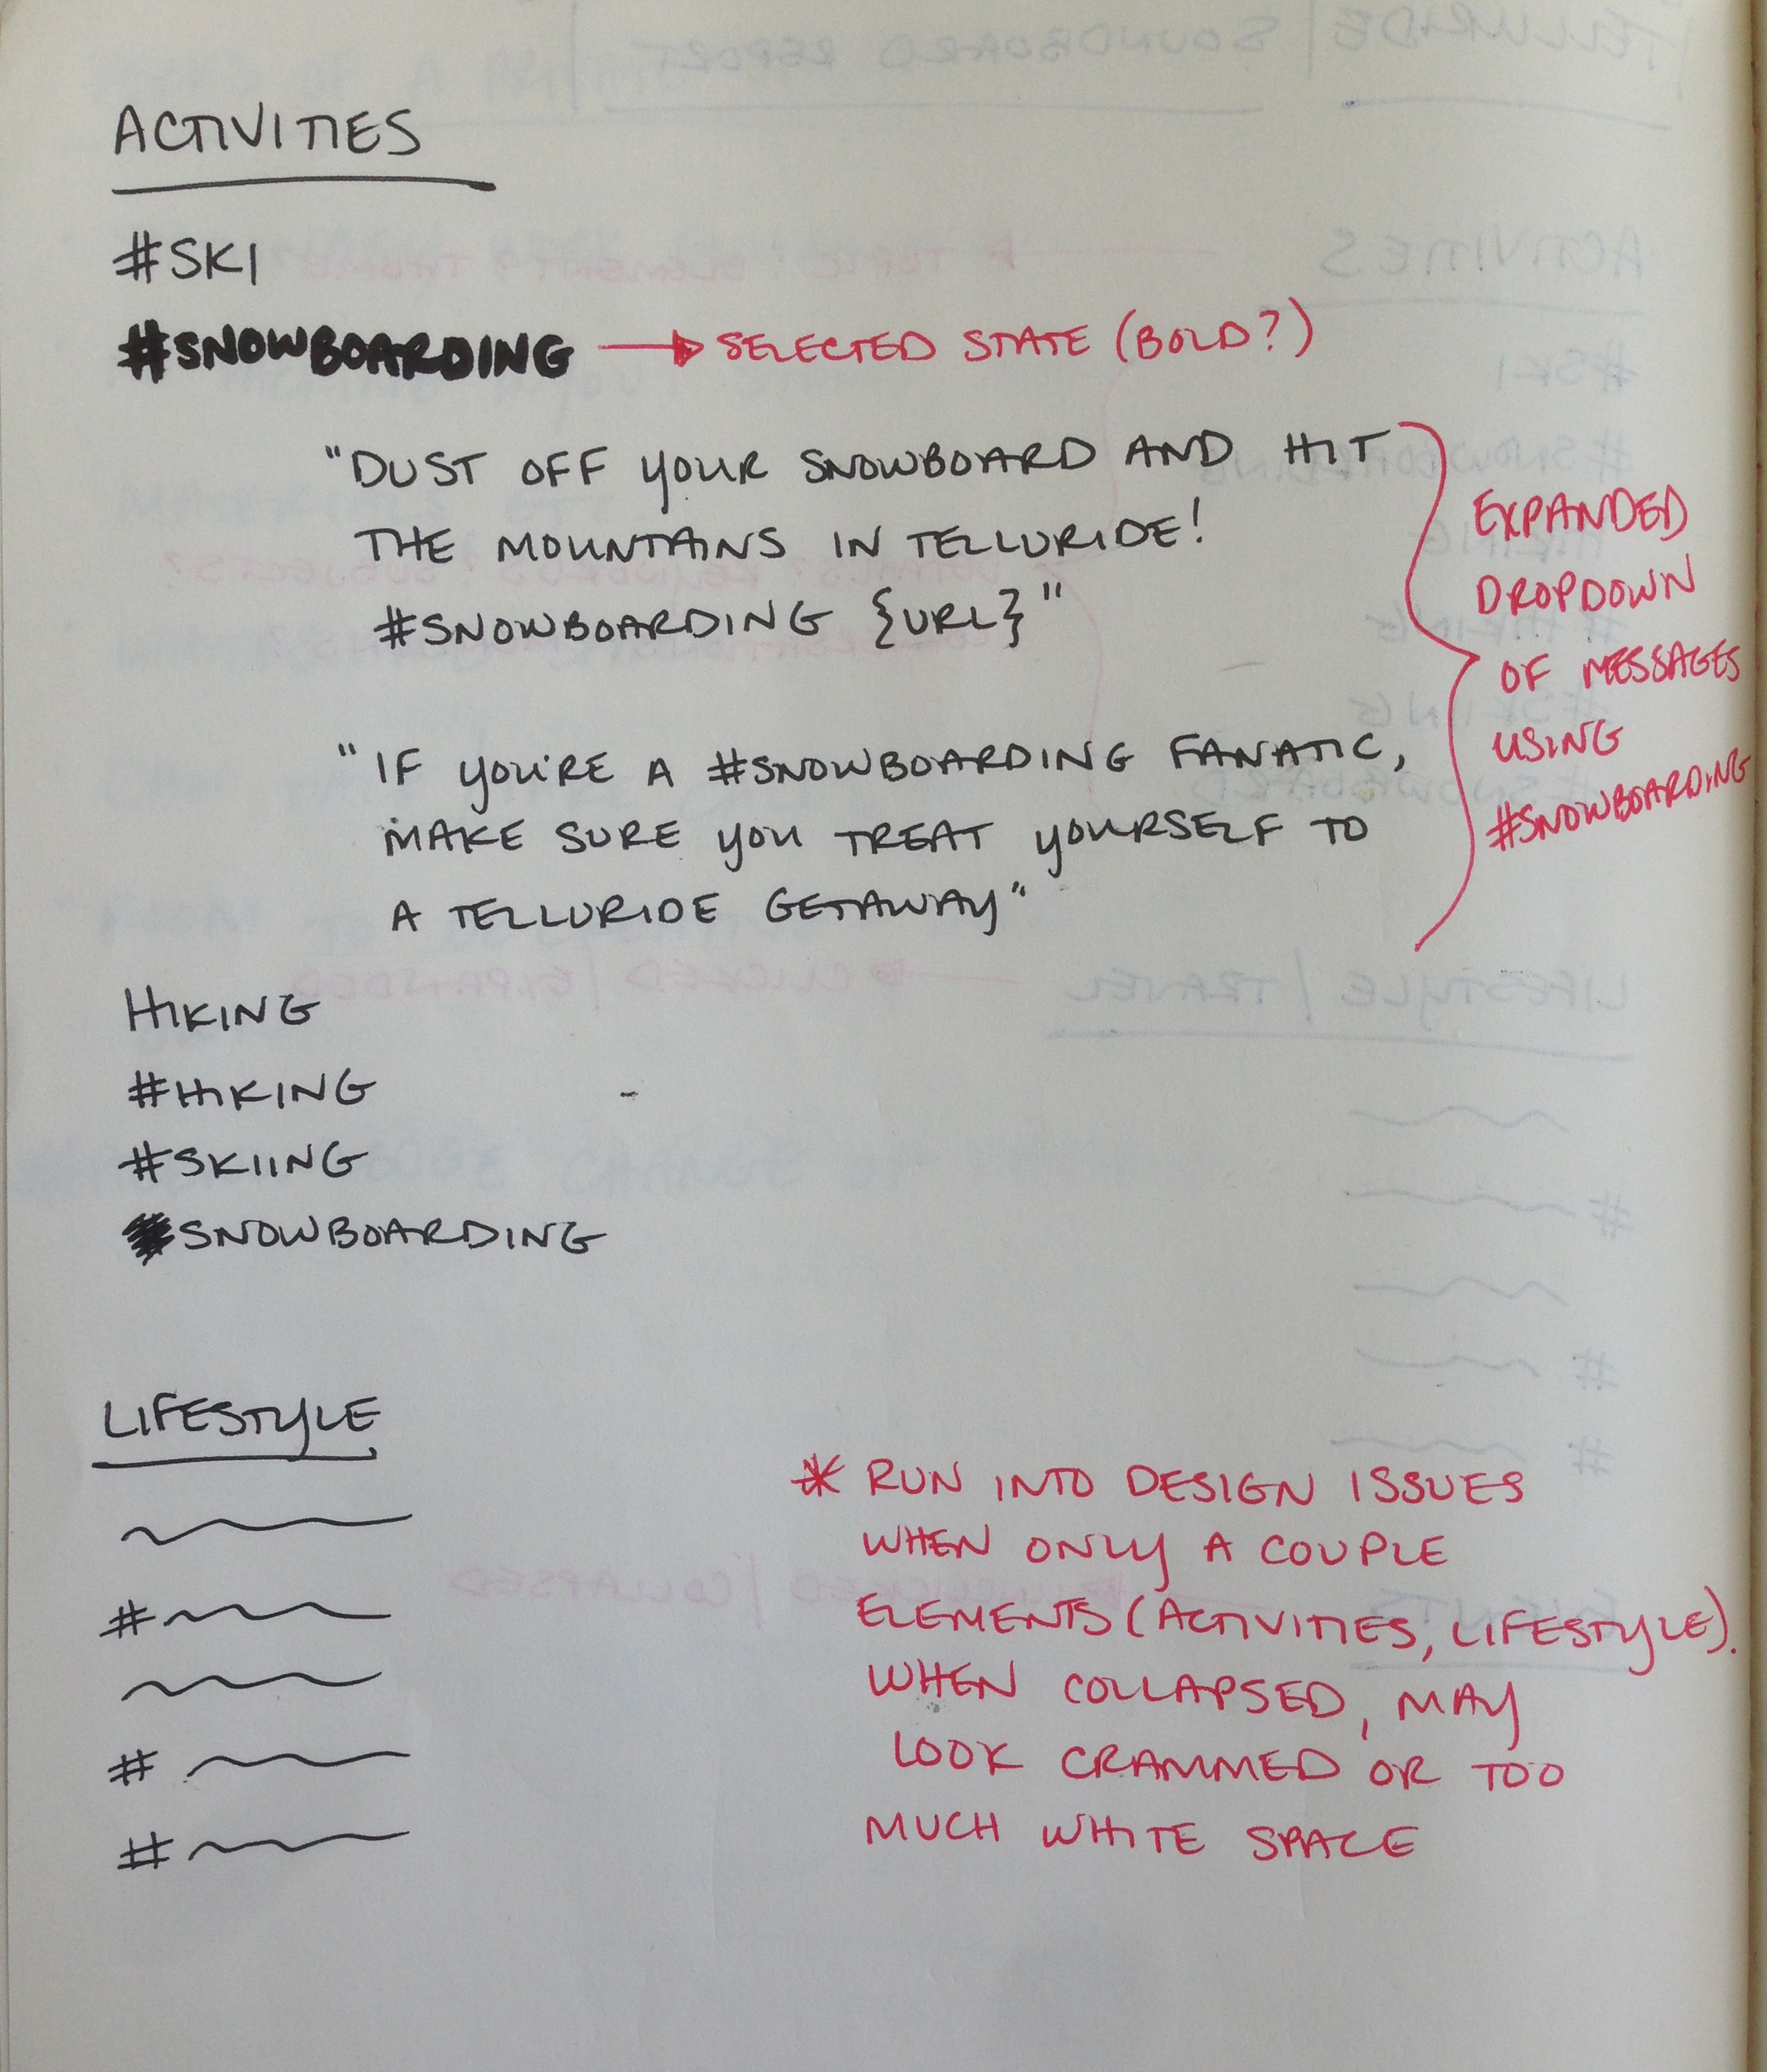 ACTIVITIES
#SKI
#SNOWBOARDING → SELECTED STATE (BOLD?)
"DUST OFF YOUR SNOWBOARD AND HIT
THE MOUNTAINS IN TELLURIDE!
#SNOWBOARDING {URL}"
"IF YOU'RE A #SNOWBOARDING FANATIC,
MAKE SURE YOU TREAT YOURSELF TO
A TELLURIDE GETAWAY"
EXPANDED
DROPDOWN
OF MESSAGES
USING
#SNOWBOARDING
HIKING
#HIKING
#SKIING
SNOWBOARDING
LIFESTYLE
#
#
#
* RUN INTO DESIGN ISSUES
WHEN ONLY A COUPLE
ELEMENTS (ACTIVITIES, LIFESTYLE).
WHEN COLLAPSED, MAY
LOOK CRAMMED OR TOO
MUCH WHITE SPACE